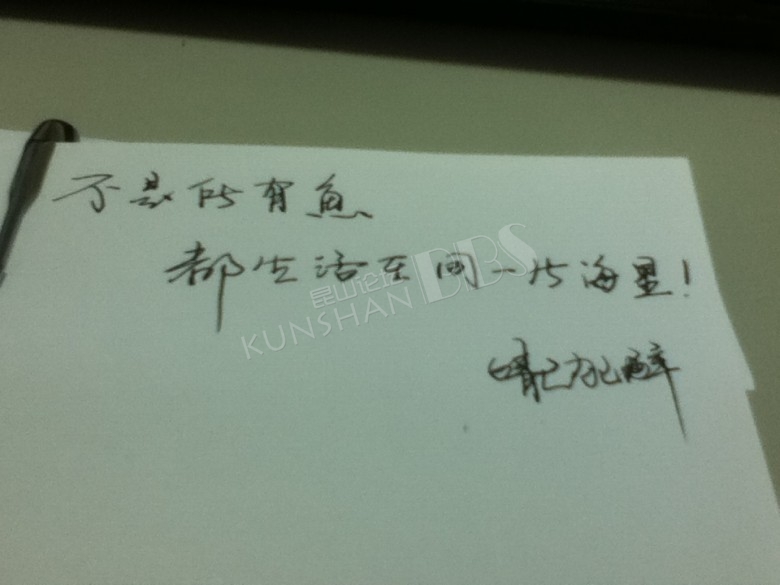 不是所有鱼
都生活在同一片海里!
昆山论坛 BBS
KUNSHAN